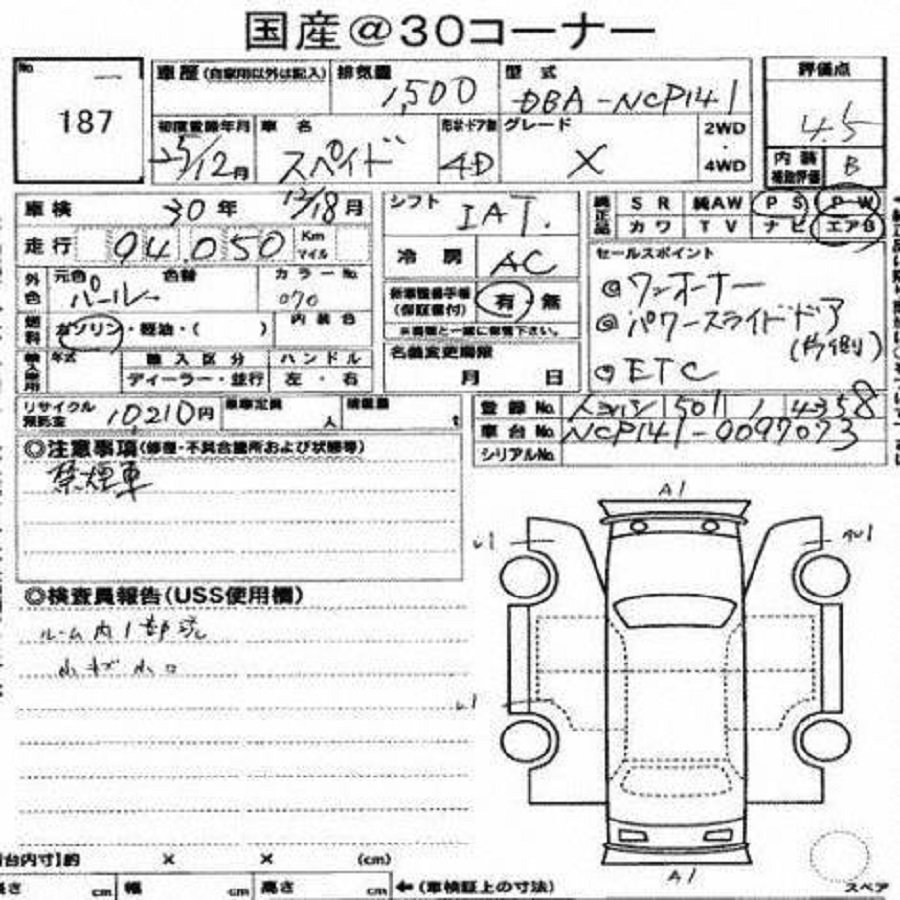 国産@30コーナー
No. 187
車歴(自家用以外は記入) 排気量 1,500 型式 DBA-NCP141 評価点 4.5
初度登録年月 25/12月 車名 スペイド 形状・ドア数 4D グレード X 2WD・4WD 内装補助評価 B
車検 30年 12/18月 シフト IAT. 純正品 SR 純AW PS PW
走行 94,050 Km マイル カワ TV ナビ エアB
冷房 AC
外色 元色 パール 色替 カラーNo. 070
セールスポイント
◎ワンオーナー
◎パワースライドドア
◎ETC
新車整備手帳(保証書付) 有・無
※書類と一緒に保管下さい。
燃料 ガソリン・軽油・( ) 内装色
輸入車用 年式 輸入区分 ハンドル
ディーラー・並行 左・右
名義変更期限 月 日
リサイクル預託金 10,210円 人 t
登録No. 501 4358
車台No. NCP141-0097073
シリアルNo.
◎注意事項(修復・不具合箇所および状態等)
禁煙車
◎検査員報告(USS使用欄)
ルーム内
A1
A1
台内寸】約 × × (cm)
長さ cm 幅 cm 高さ cm ←(車検証上の寸法)
スペア